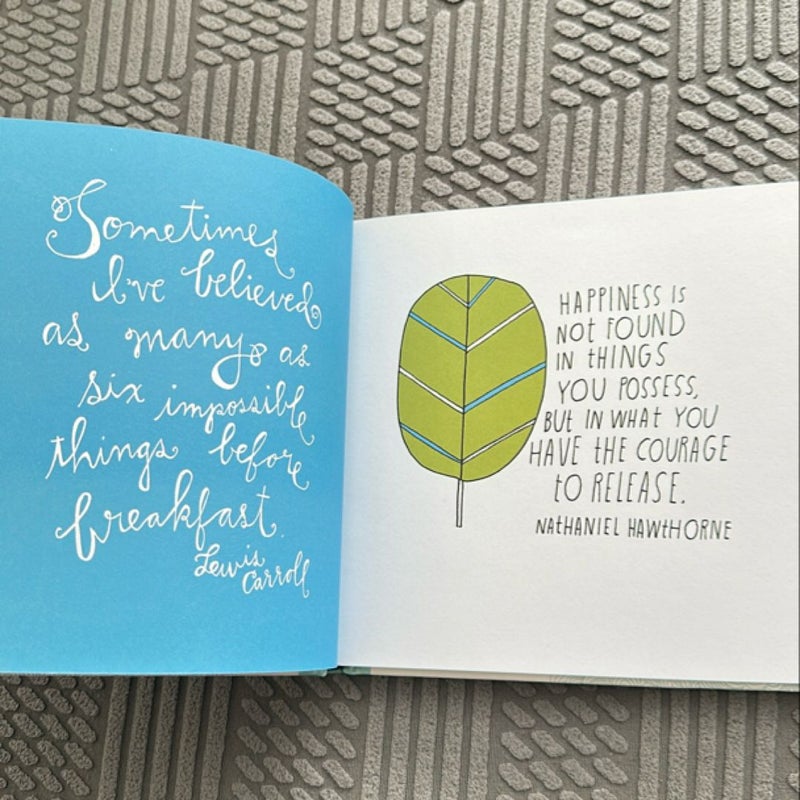 Sometimes
I've believed
as many as
six impossible
things before
breakfast.
Lewis
Carroll
HAPPINESS IS
NOT FOUND
IN tHINGS
YOU POSSESS,
BUT IN WHAT YOU
HAVE tHE COURAGE
tO RELEASE.
NAtHANIEL HAWtHORNE